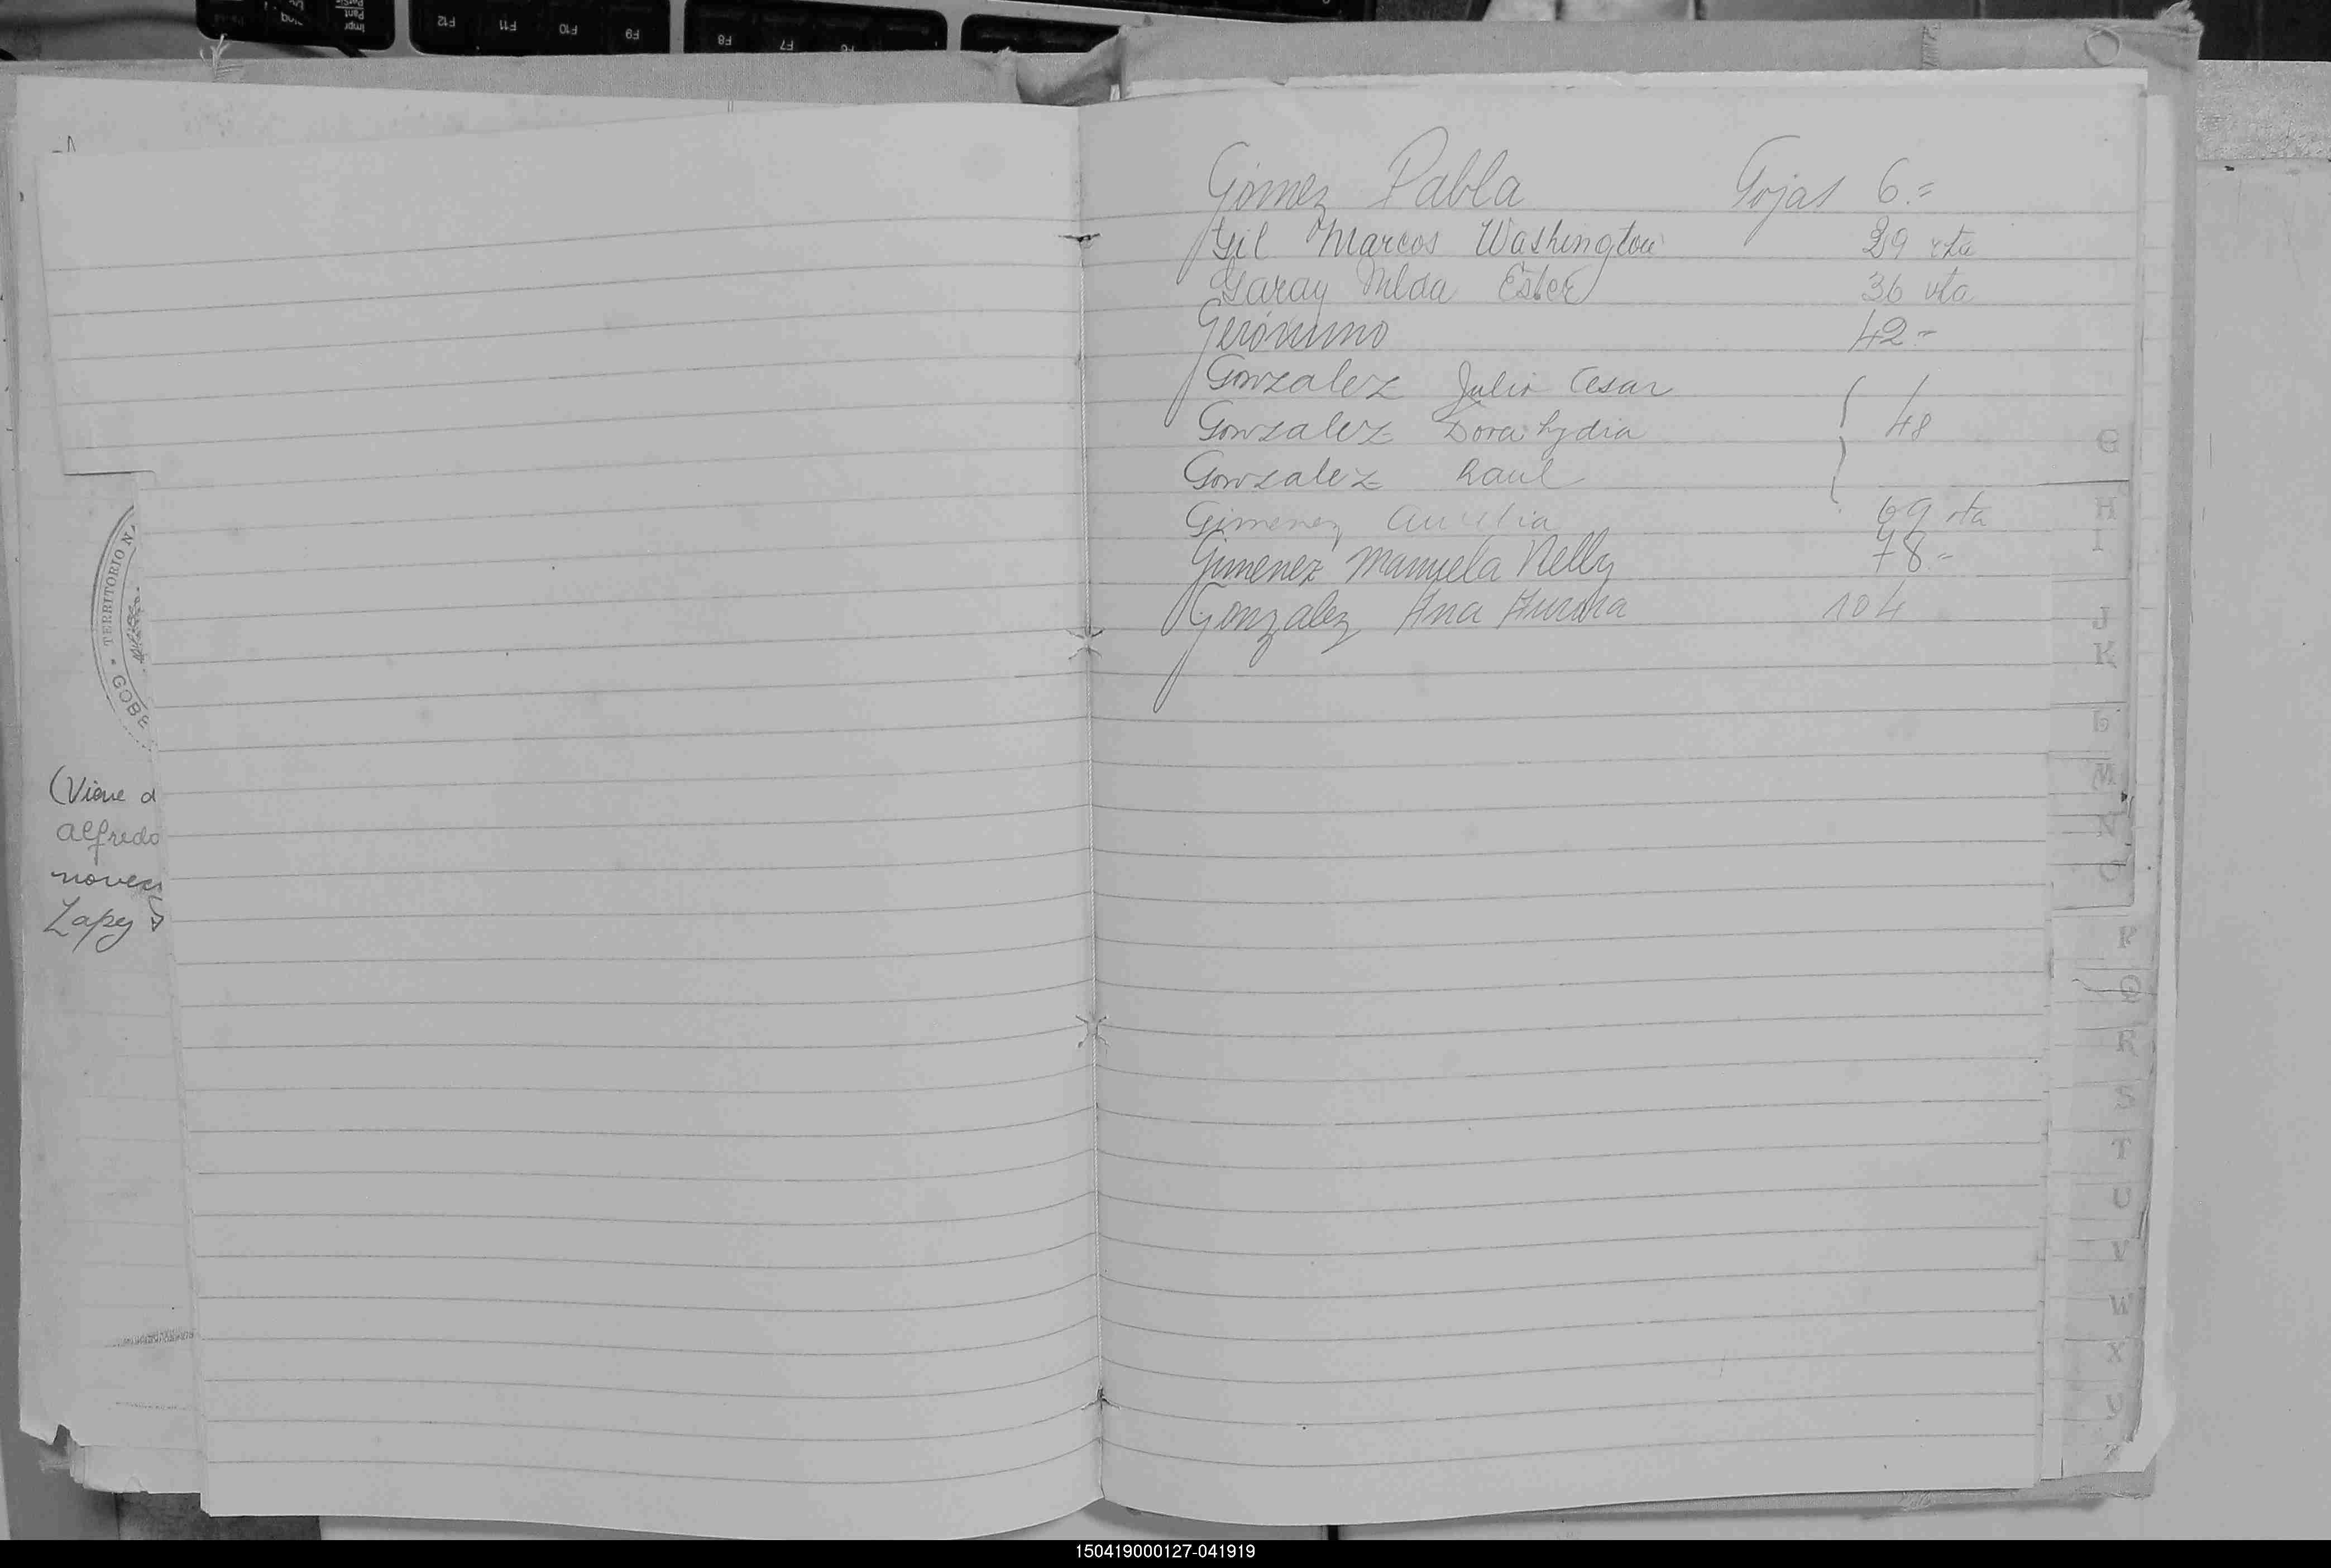 TERRITORIO N
GOBE
(Viene d
Alfredo
novec
Zapy
Gómez Pabla Fojas 6.=
Gil Marcos Washington 29 vta
Garay Nilda Ester 36 vta
Gerónimo 42-
Gonzalez Julio Cesar
Gonzalez Dora Lydia 48
Gonzalez Raul
Gimenez Aurelia 69 vta
Gimenez Manuela Nelly 78-
Gonzalez Ana Aurora 104
G
H
I
J
K
L
M
N
O
P
Q
R
S
T
U
V
W
X
F12 F11 F10 F9 F8 F7 F6
Impr
Pant
150419000127-041919